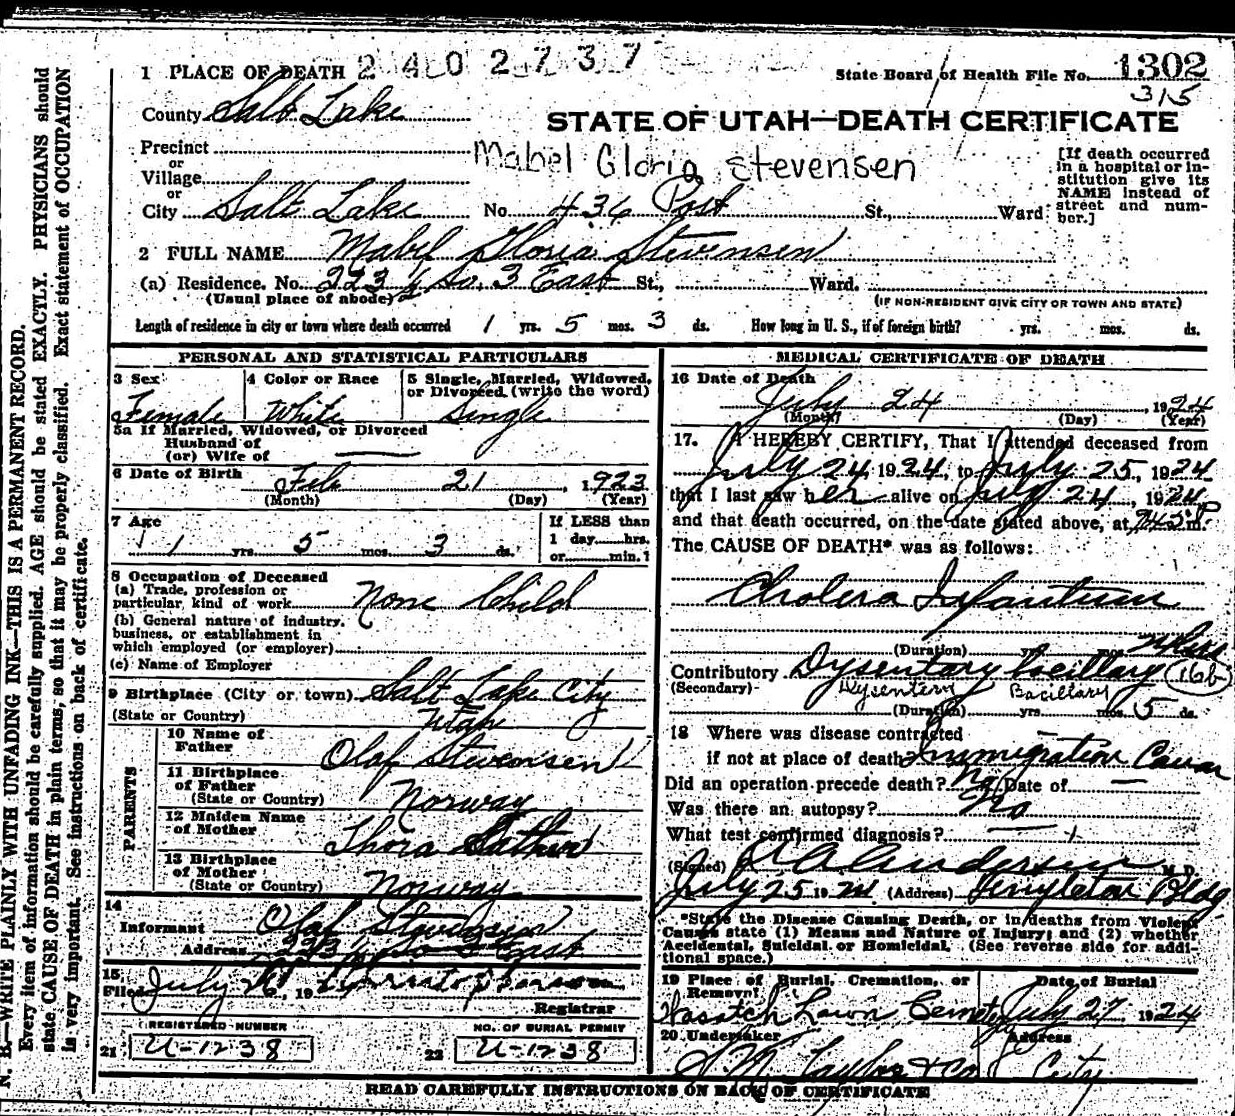 1 PLACE OF DEATH 2 4 0 2 7 3 7
State Board of Health File No. 1302
315
County Salt Lake
STATE OF UTAH—DEATH CERTIFICATE
Precinct
Mabel Gloria Stevensen
or
Village
or
City Salt Lake No. 436 Post St., Ward
[If death occurred
in a hospital or in-
stitution give its
NAME instead of
street and num-
ber.]
2 FULL NAME Mabel Gloria Stevensen
(a) Residence. No. 223 ½ So. 3 East St., Ward.
(Usual place of abode)
(IF NON-RESIDENT GIVE CITY OR TOWN AND STATE)
Length of residence in city or town where death occurred 1 yrs. 5 mos. 3 ds. How long in U. S., if of foreign birth? yrs. mos. ds.
PERSONAL AND STATISTICAL PARTICULARS
3 Sex
Female
4 Color or Race
White
5 Single, Married, Widowed,
or Divorced (write the word)
Single
5a If Married, Widowed, or Divorced
Husband of
(or) Wife of
6 Date of Birth Feb 21, 1923
(Month) (Day) (Year)
7 Age
1 yrs. 5 mos. 3 ds.
If LESS than
1 day hrs.
or min.
8 Occupation of Deceased
(a) Trade, profession or
particular, kind of work None Child
(b) General nature of industry.
business, or establishment in
which employed (or employer)
(c) Name of Employer
9 Birthplace (City or town) Salt Lake City
(State or Country) Utah
PARENTS
10 Name of
Father Olaf Stevensen
11 Birthplace
of Father
(State or Country) Norway
12 Maiden Name
of Mother Thora
13 Birthplace
of Mother
(State or Country) Norway
14
Informant Olaf Stevensen
Address 223 ½ So 3 East
15
Filed July 26, 19
Registrar
REGISTERED NUMBER
21 U-1238
NO. OF BURIAL PERMIT
22 U-1238
MEDICAL CERTIFICATE OF DEATH
16 Date of Death
July 24, 1924
(Month) (Day) (Year)
17. I HEREBY CERTIFY, That I attended deceased from
July 24, 1924, to July 25, 1924
that I last saw her alive on July 24, 1924
and that death occurred, on the date stated above, at P m.
The CAUSE OF DEATH* was as follows:
Cholera Infantum
(Duration) yrs. mos.
Contributory Dysentary bacillary 16b
(Secondary) Dysentery Bacillary
(Duration) yrs. mos. 5 ds.
18 Where was disease contracted
if not at place of death Immigration Canon
Did an operation precede death? No Date of
Was there an autopsy? No
What test confirmed diagnosis?
(Signed) Anderson M. D.
July 25 1924 (Address) Templeton Bldg
*State the Disease Causing Death, or in deaths from Violent
Causes state (1) Means and Nature of Injury; and (2) whether
Accidental, Suicidal or Homicidal. (See reverse side for addi-
tional space.)
19 Place of Burial, Cremation, or
Removal
Wasatch Lawn Cemety
Date of Burial
July 27 1924
20 Undertaker
S. M. Taylor & Co
Address
City
READ CAREFULLY INSTRUCTIONS ON BACK OF CERTIFICATE
N. B.—WRITE PLAINLY WITH UNFADING INK—THIS IS A PERMANENT RECORD.
Every item of information should be carefully supplied. AGE should be stated EXACTLY. PHYSICIANS should
state CAUSE OF DEATH in plain terms, so that it may be properly classified. Exact statement of OCCUPATION
is very important. See instructions on back of certificate.